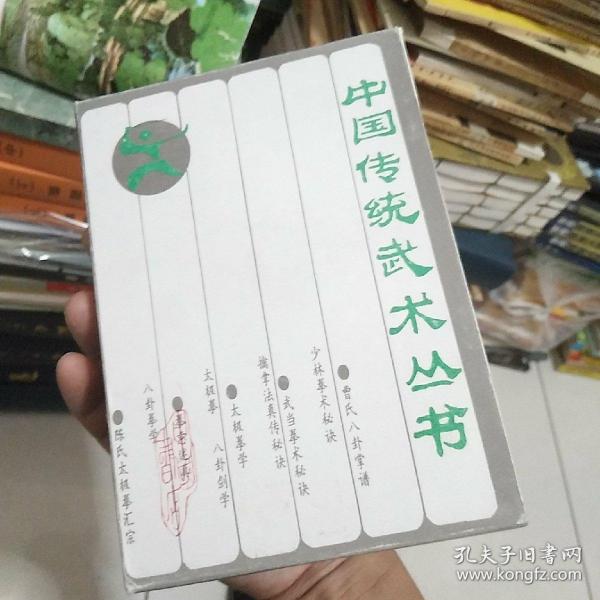 中国传统武术丛书
曹氏八卦掌谱
少林拳术秘诀
武当拳术秘诀
擒拿法真传秘诀
太极拳学
八卦剑学
太极拳
八卦拳学
陈氏太极拳汇宗
孔夫子旧书网
www.kongfz.com